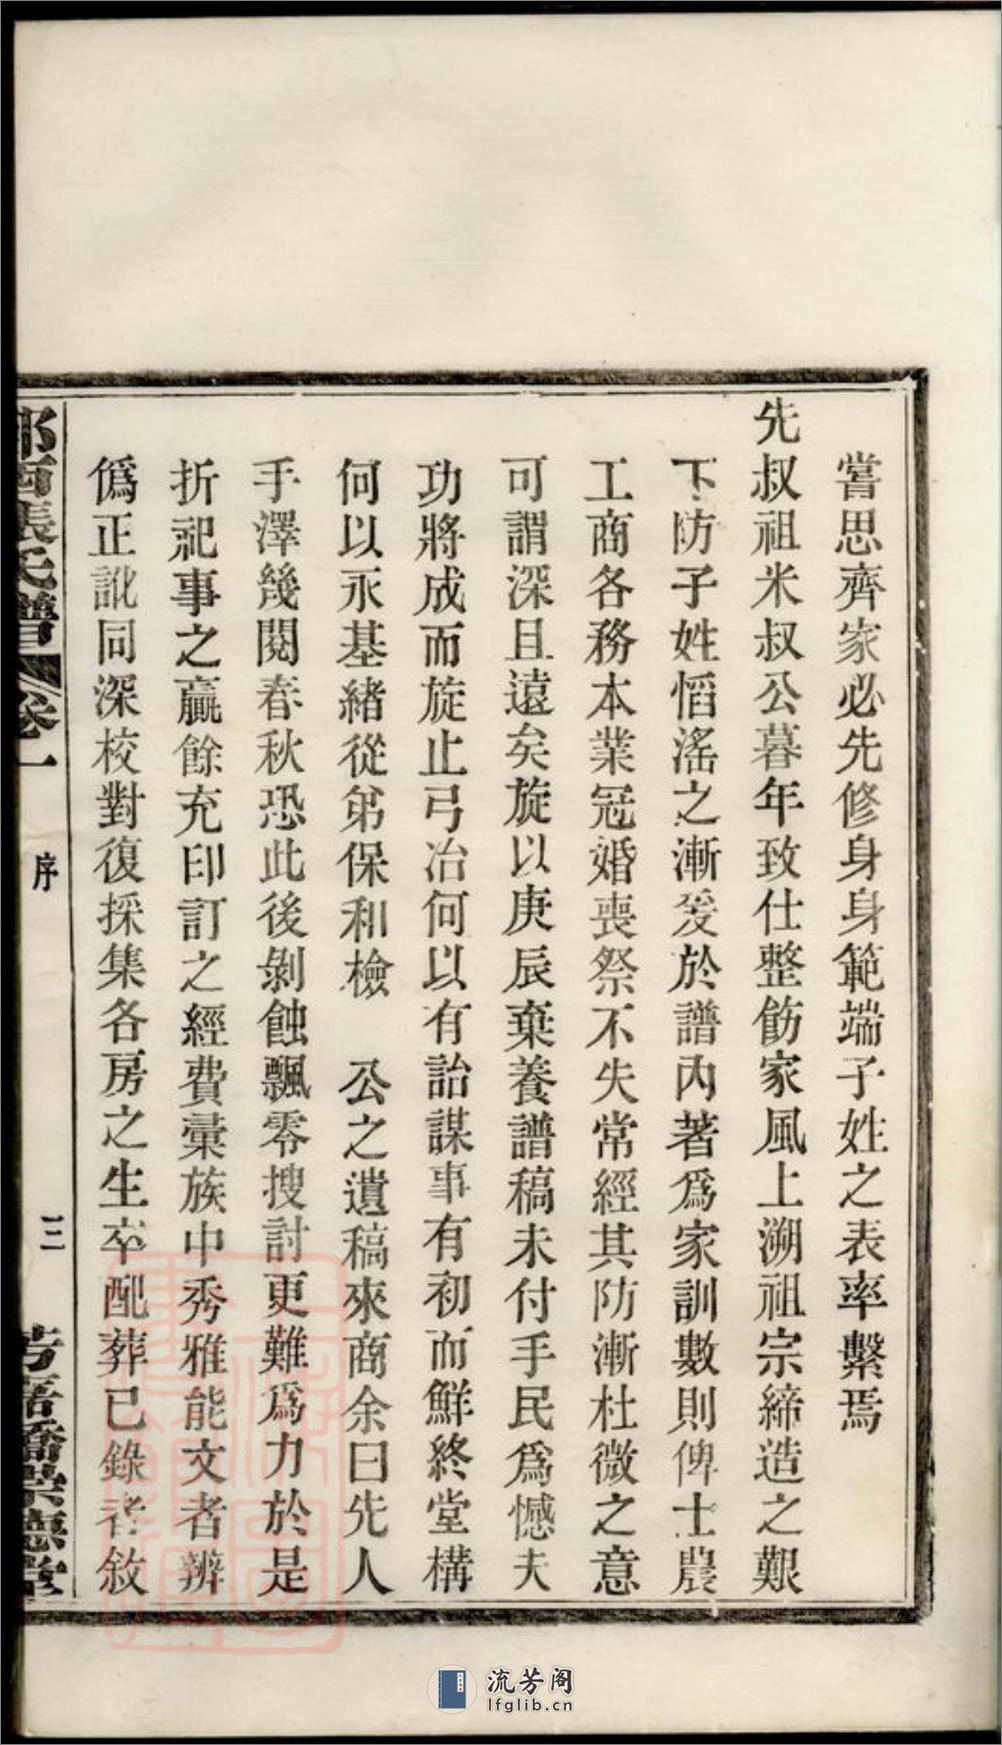 嘗思齊家必先修身身範端子姓之表率繫焉
先叔祖米叔公暮年致仕整飭家風上溯祖宗締造之艱
下防子姓慆滛之漸爰於譜內著爲家訓數則俾士農
工商各務本業冠婚喪祭不失常經其防漸杜微之意
可謂深且遠矣旋以庚辰棄養譜稿未付手民爲憾夫
功將成而旋止弓冶何以有詒謀事有初而鮮終堂構
何以永基緒從弟保和檢 公之遺稿來商余曰先人
手澤幾閱春秋恐此後剝蝕飄零搜討更難爲力於是
折祀事之贏餘充印訂之經費彙族中秀雅能文者辨
僞正訛同深校對復採集各房之生卒配葬已錄者敘
張氏譜 卷一 序 三 崇德堂
流芳阁
lfglib.cn